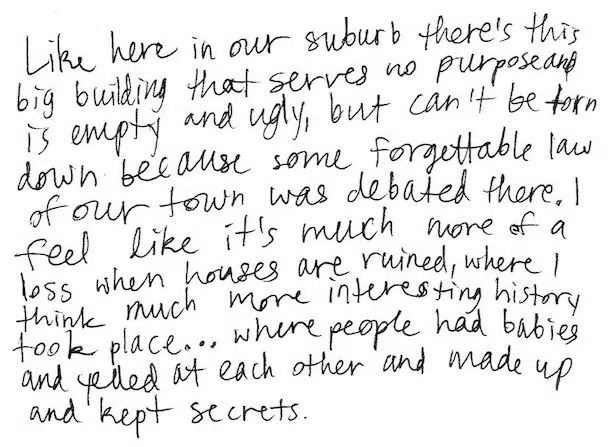 Like here in our suburb there's this
big building that serves no purpose and
is empty and ugly, but can't be torn
down because some forgettable law
of our town was debated there. I
feel like it's much more of a
loss when houses are ruined, where I
think much more interesting history
took place... where people had babies
and yelled at each other and made up
and kept secrets.